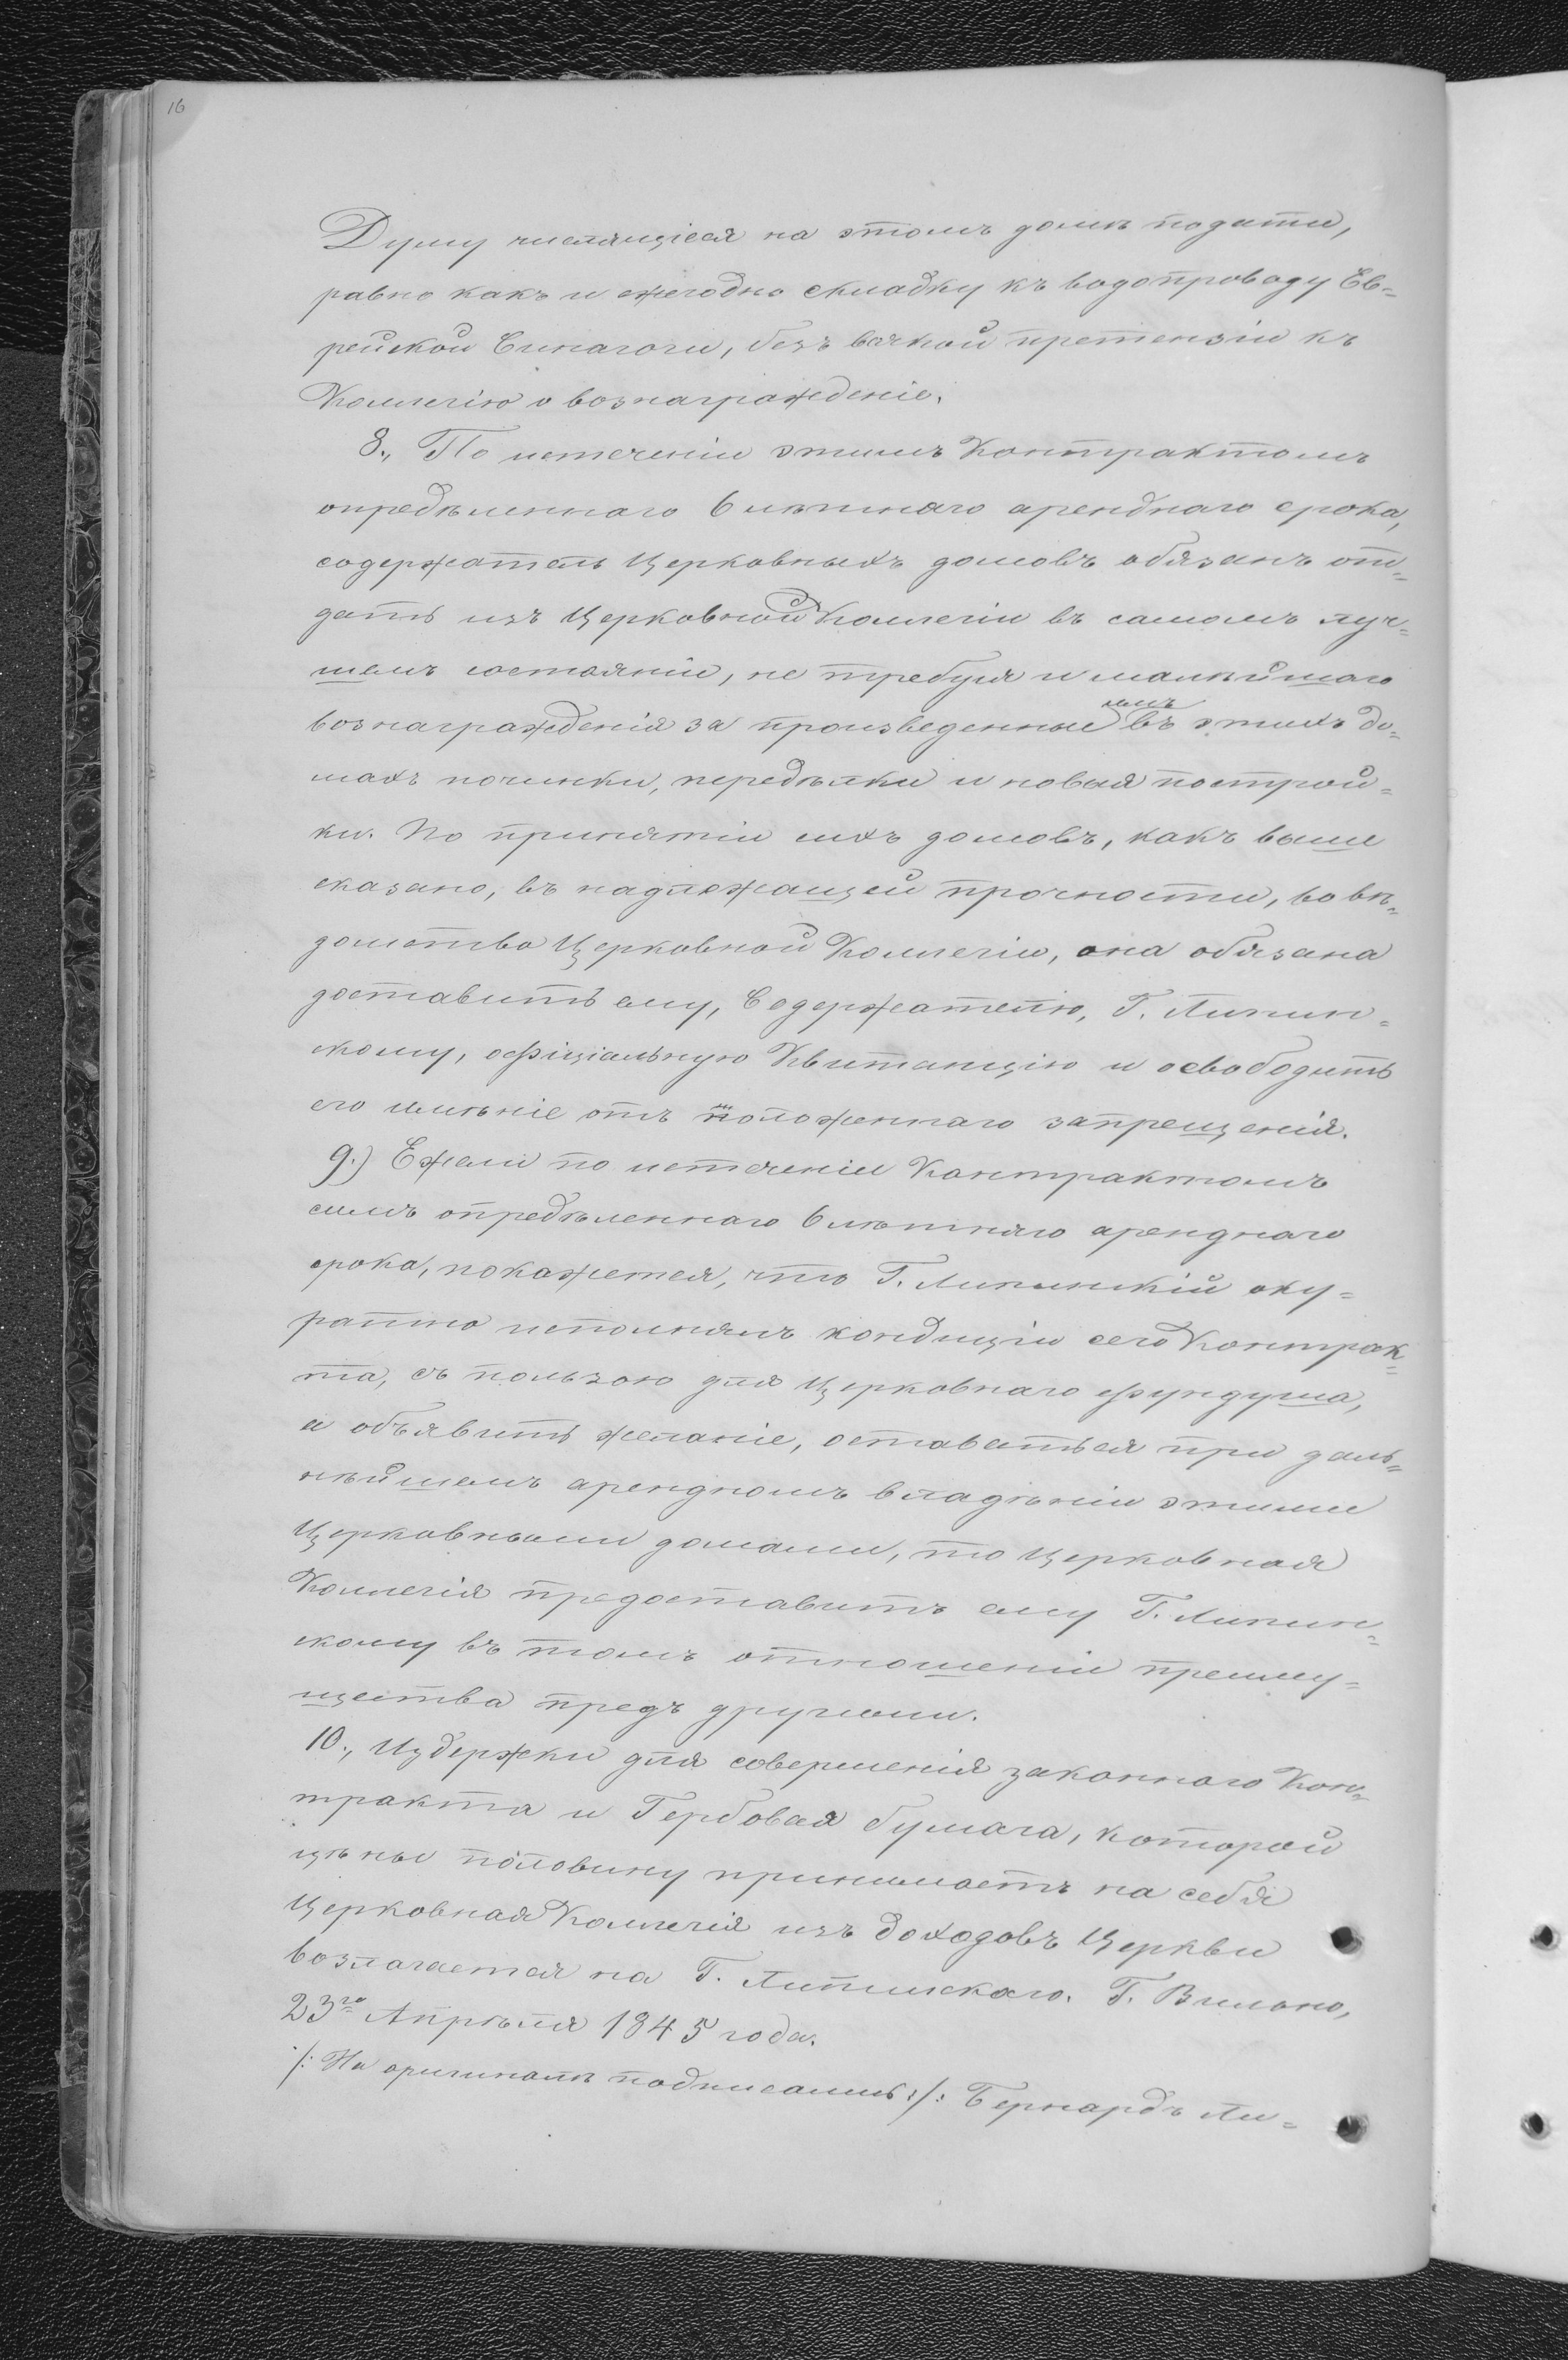 16
Думу числящіеся на этомъ домѣ подати,
равно какъ и ежегодно складку къ водопроводу Ев=
рейской Синагоги, безъ всякой претензіи къ
Коллегію о вознагражденіе.
8., По истеченіи этимъ Контрактомъ
опредѣленнаго 6 лѣтняго арендного срока,
содержатель Церковныхъ домовъ обязанъ от=
дать ихъ Церковной Коллегіи въ самомъ луч=
шемъ состояніи, не требуя и малѣйшаго
вознагражденія за произведенные имъ въ этихъ до=
махъ починки, передѣлки и новыя построй=
ки. По принятіи сихъ домовъ, какъ выше
сказано, въ надлежащей прочности, во вѣ=
домство Церковной Коллегіи, она обязана
доставить ему, Содержателю, Г. Липин=
скому, офиціальную Квитанцію и освободить
его имѣніе отъ положеннаго запрещенія.
9.) Ежели по истеченіи Контрактомъ
симъ опредѣленнаго 6 лѣтняго арендного
срока, покажется, что Г. Липинскій аку=
ратно исполнялъ кондиціи сего Контрак=
та, съ пользою для Церковнаго фундуша,
и объявитъ желаніе, оставаться при даль=
нѣйшемъ арендномъ владѣніи этими
Церковными домами, то Церковная
Коллегія предоставитъ ему Г. Липин=
скому въ томъ отношеніи преиму=
щества предъ другими.
10., Издержки для совершенія законнаго Кон=
тракта и Гербовая бумага, которой
цѣны половину принимаетъ на себя
Церковная Коллегія изъ доходовъ Церкви
возлагается на Г. Липинскаго. Г. Вильно,
23го Апрѣля 1845 года.
/: На оригиналѣ подписались :/: Бернардъ Ли=